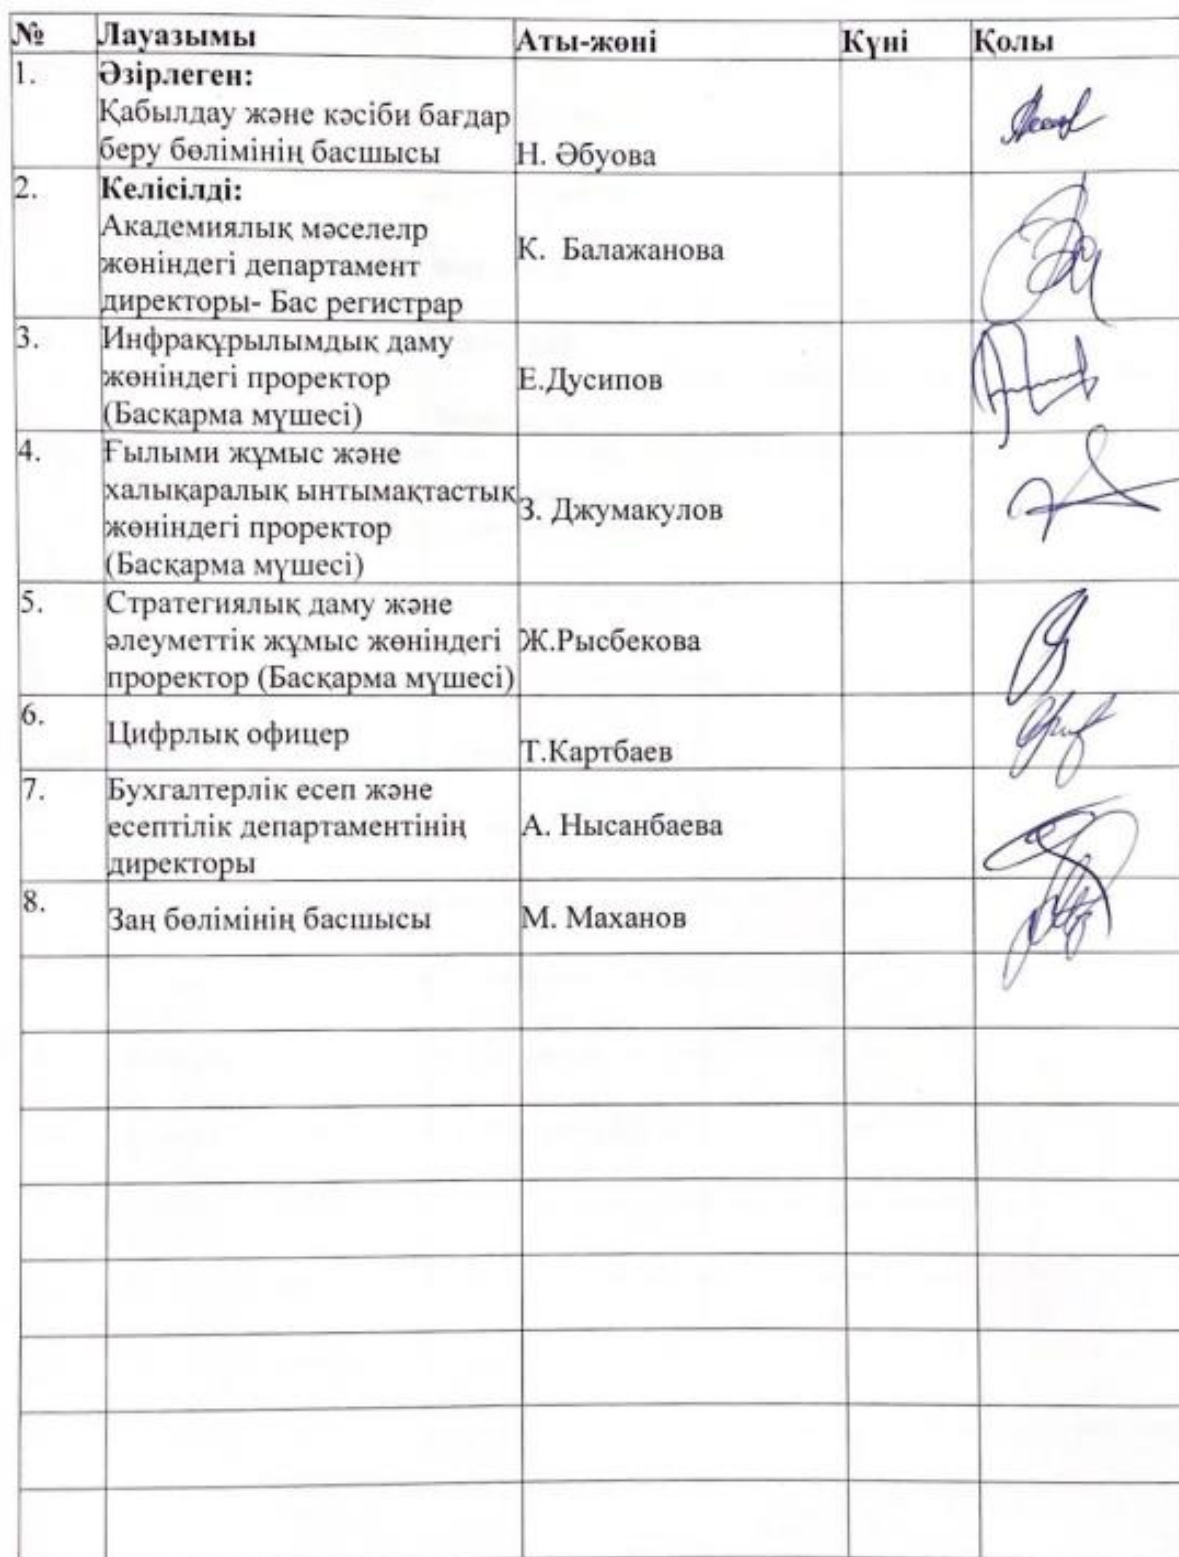 № Лауазымы Аты-жөні Күні Қолы
1. Әзірлеген:
Қабылдау және кәсіби бағдар
беру бөлімінің басшысы Н. Әбуова
2. Келісілді:
Академиялық мәселелр
жөніндегі департамент К. Балажанова
директоры- Бас регистрар
3. Инфрақұрылымдық даму
жөніндегі проректор Е.Дусипов
(Басқарма мүшесі)
4. Ғылыми жұмыс және
халықаралық ынтымақтастық З. Джумакулов
жөніндегі проректор
(Басқарма мүшесі)
5. Стратегиялық даму және
әлеуметтік жұмыс жөніндегі Ж.Рысбекова
проректор (Басқарма мүшесі)
6. Цифрлық офицер Т.Картбаев
7. Бухгалтерлік есеп және
есептілік департаментінің А. Нысанбаева
директоры
8. Заң бөлімінің басшысы М. Маханов